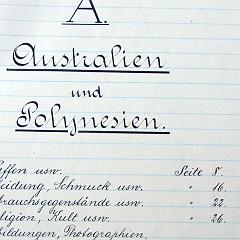 A.
Australien
und
Polynesien.
affen usw. Seite 8.
eidung, Schmuck usw. " 16.
brauchsgegenstände usw. " 22.
ligion, Kult usw. " 26.
bildungen, Photographien,